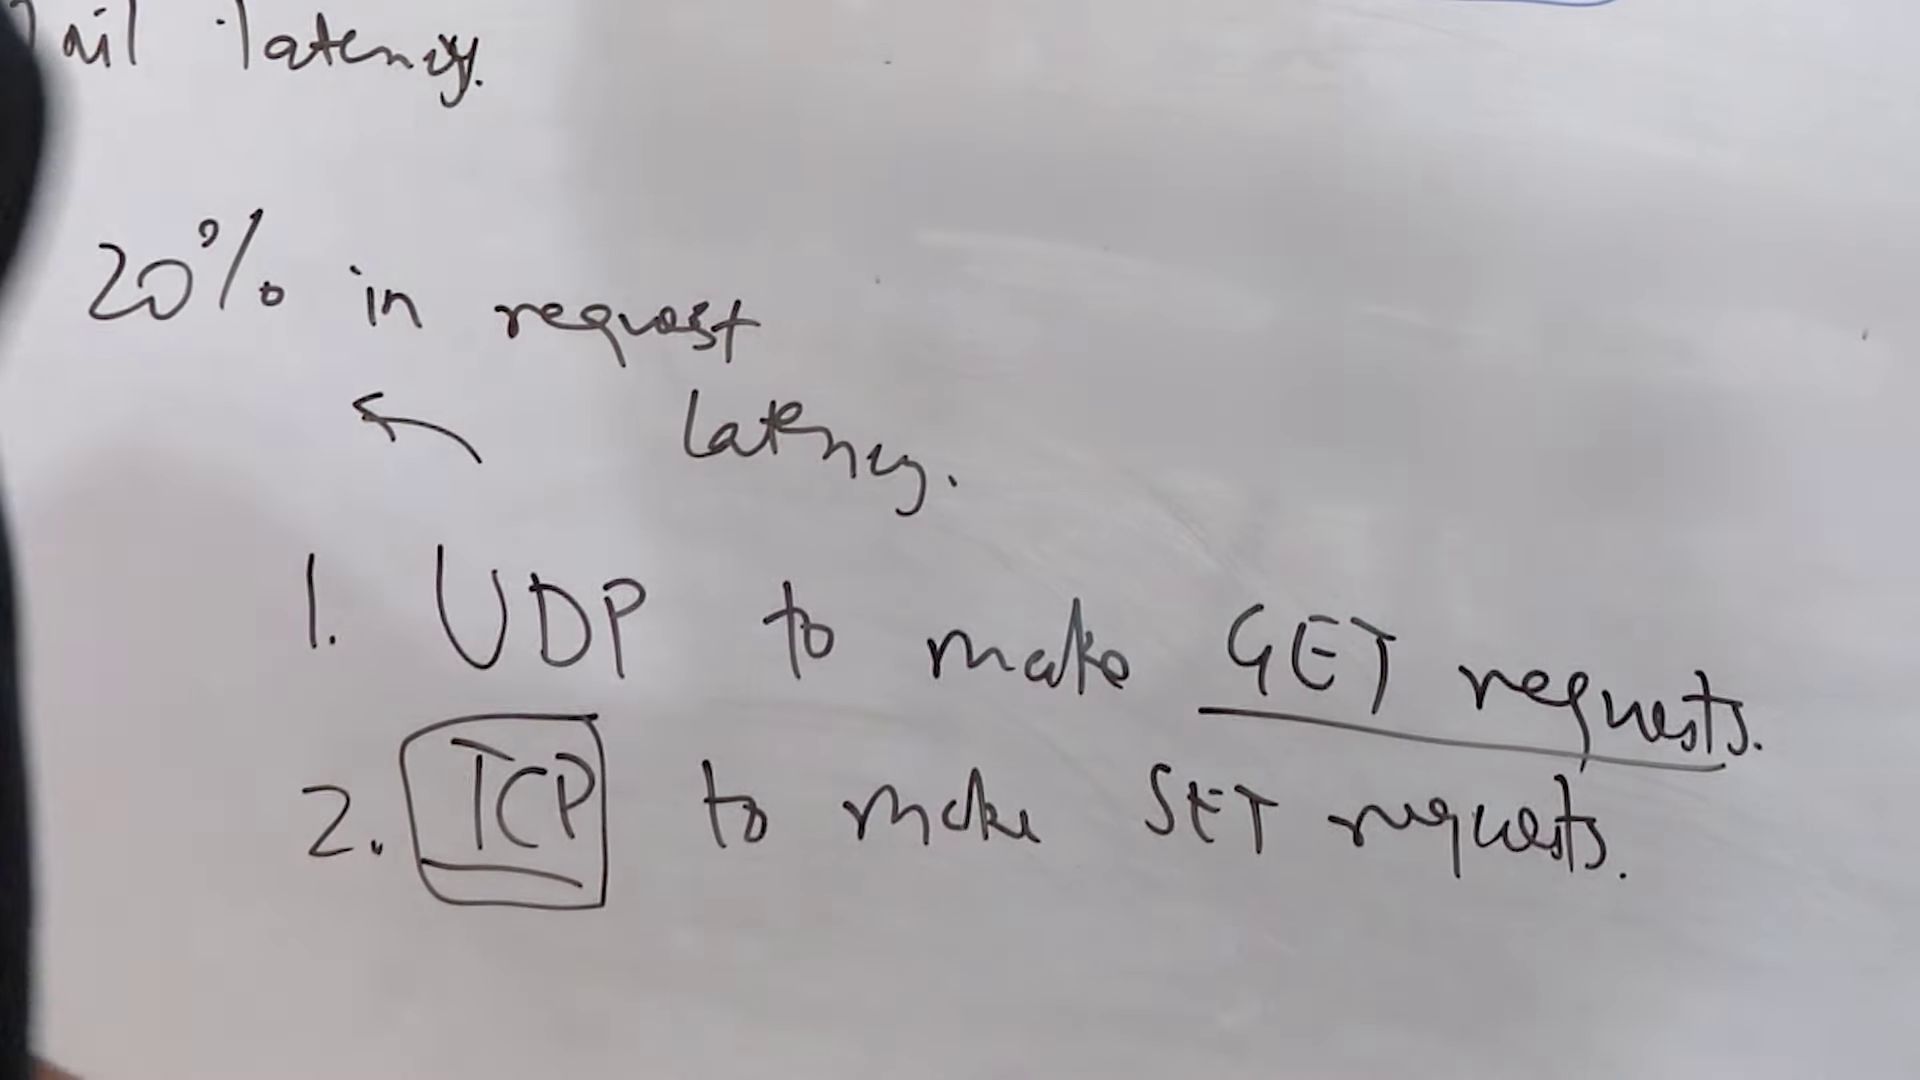 tail latency.
20% in request
latency.
1. UDP to make GET requests.
2. TCP to make SET requests.